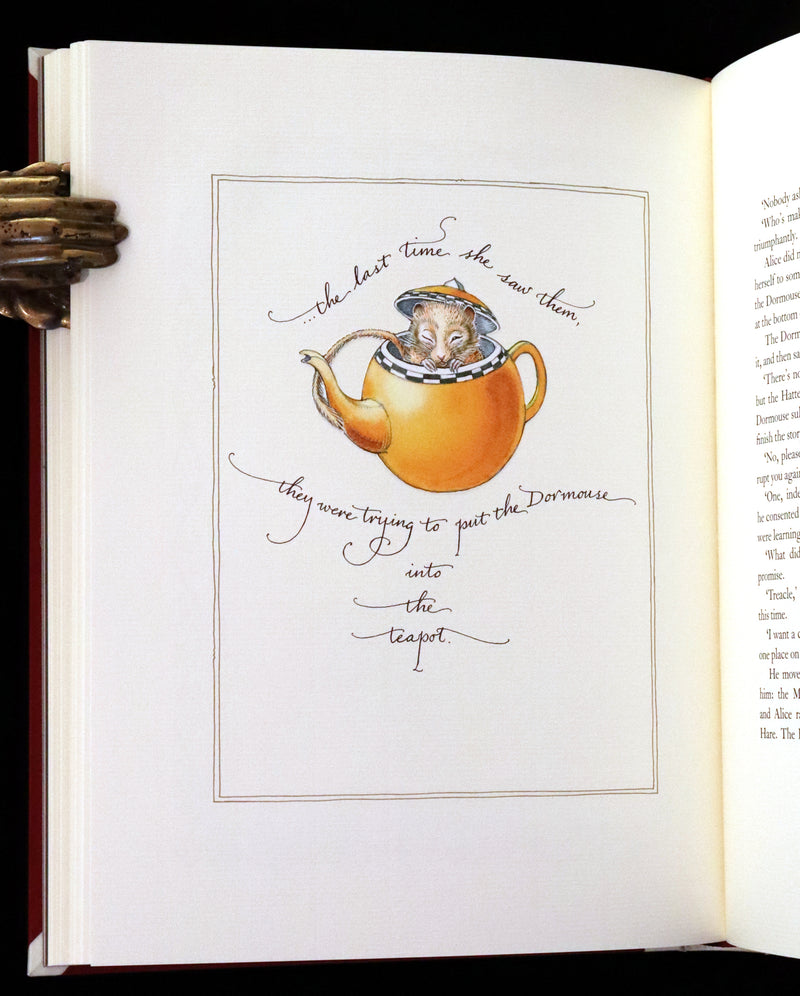 ...the last time she saw them,
they were trying to put the Dormouse
into
the
teapot.
'Nobody as
'Who's ma
triumphantly.
Alice did n
herself to som
the Dormouse
at the bottom
The Dorm
it, and then sa
'There's no
but the Hatte
Dormouse sul
finish the stor
'No, please
rupt you again
'One, inde
he consented
were learning
'What did
promise.
'Treacle,'
this time.
'I want a c
one place on
He move
him: the M
and Alice r
Hare. The